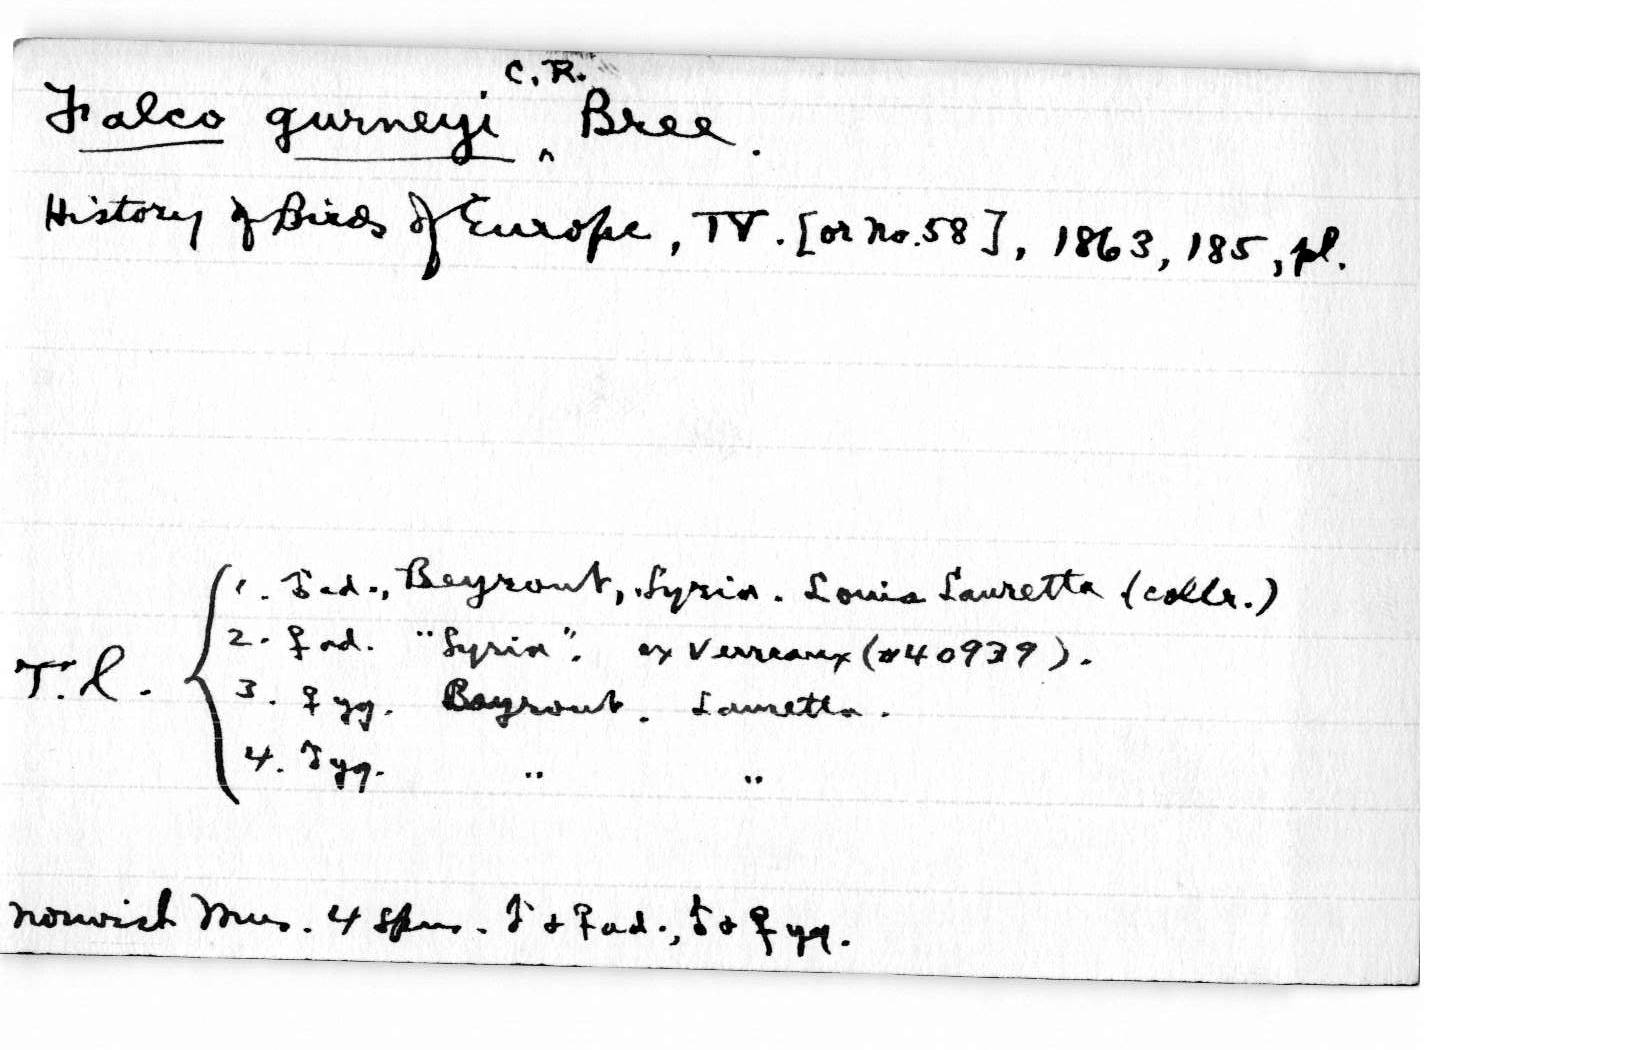 Falco gurneyi C.R. Bree.
History of Birds of Europe, IV. [or no. 58], 1863, 185, pl.
T.l. { 1. ♂ ad., Beyrout, Syria. Louis Lauretta (collr.)
2. ♀ ad. "Syria". ex Verreaux (#40939).
3. ♀ yg. Beyrout. Lauretta.
4. ♂ yg. " "
Norwich Mus. 4 spms. ♂ & ♀ ad., ♂ & ♀ yg.